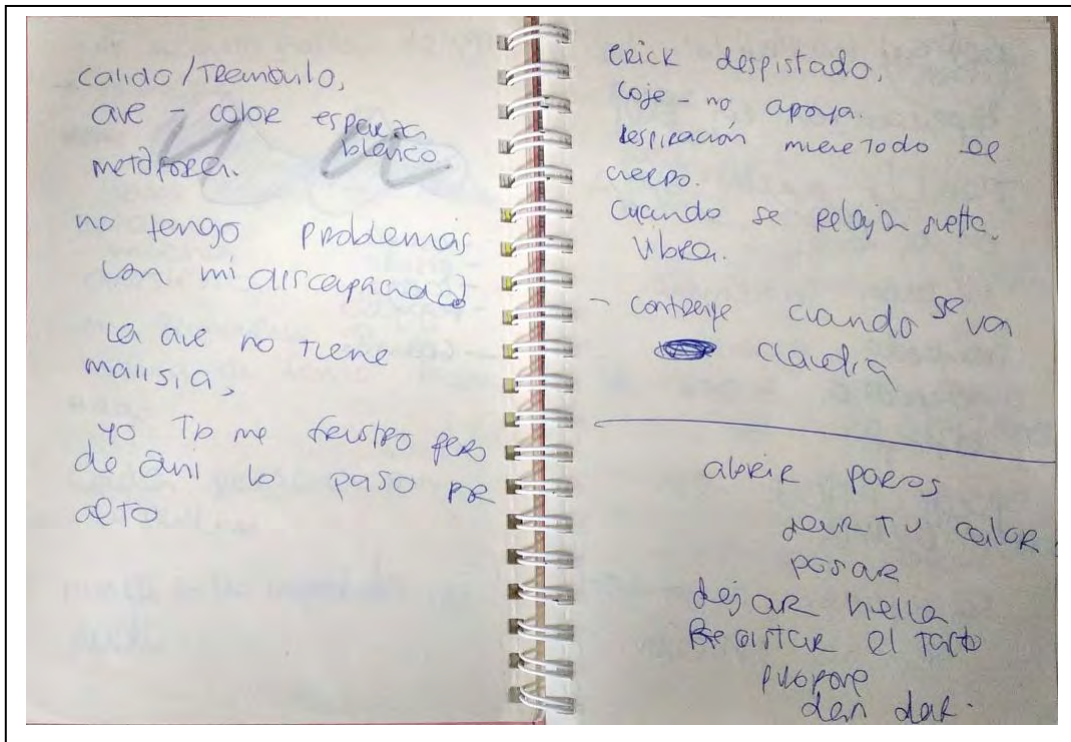 calido/Tremúulo,
ave - color esperanza
blanco.
metáfora.
no tengo problemas
con mi discapacidad
la ave no tiene
malisia,
yo Tb me frustro pero
de ahi lo paso por
alto
erick despistado,
coje - no apoya.
respiración mueve Todo el
cuerpo.
Cuando se relaja suelta,
vibra.
- contrae cuando se va
claudia
abrir poros
dar tu calor
posar
dejar huella
Registrar el tacto
propone
dar